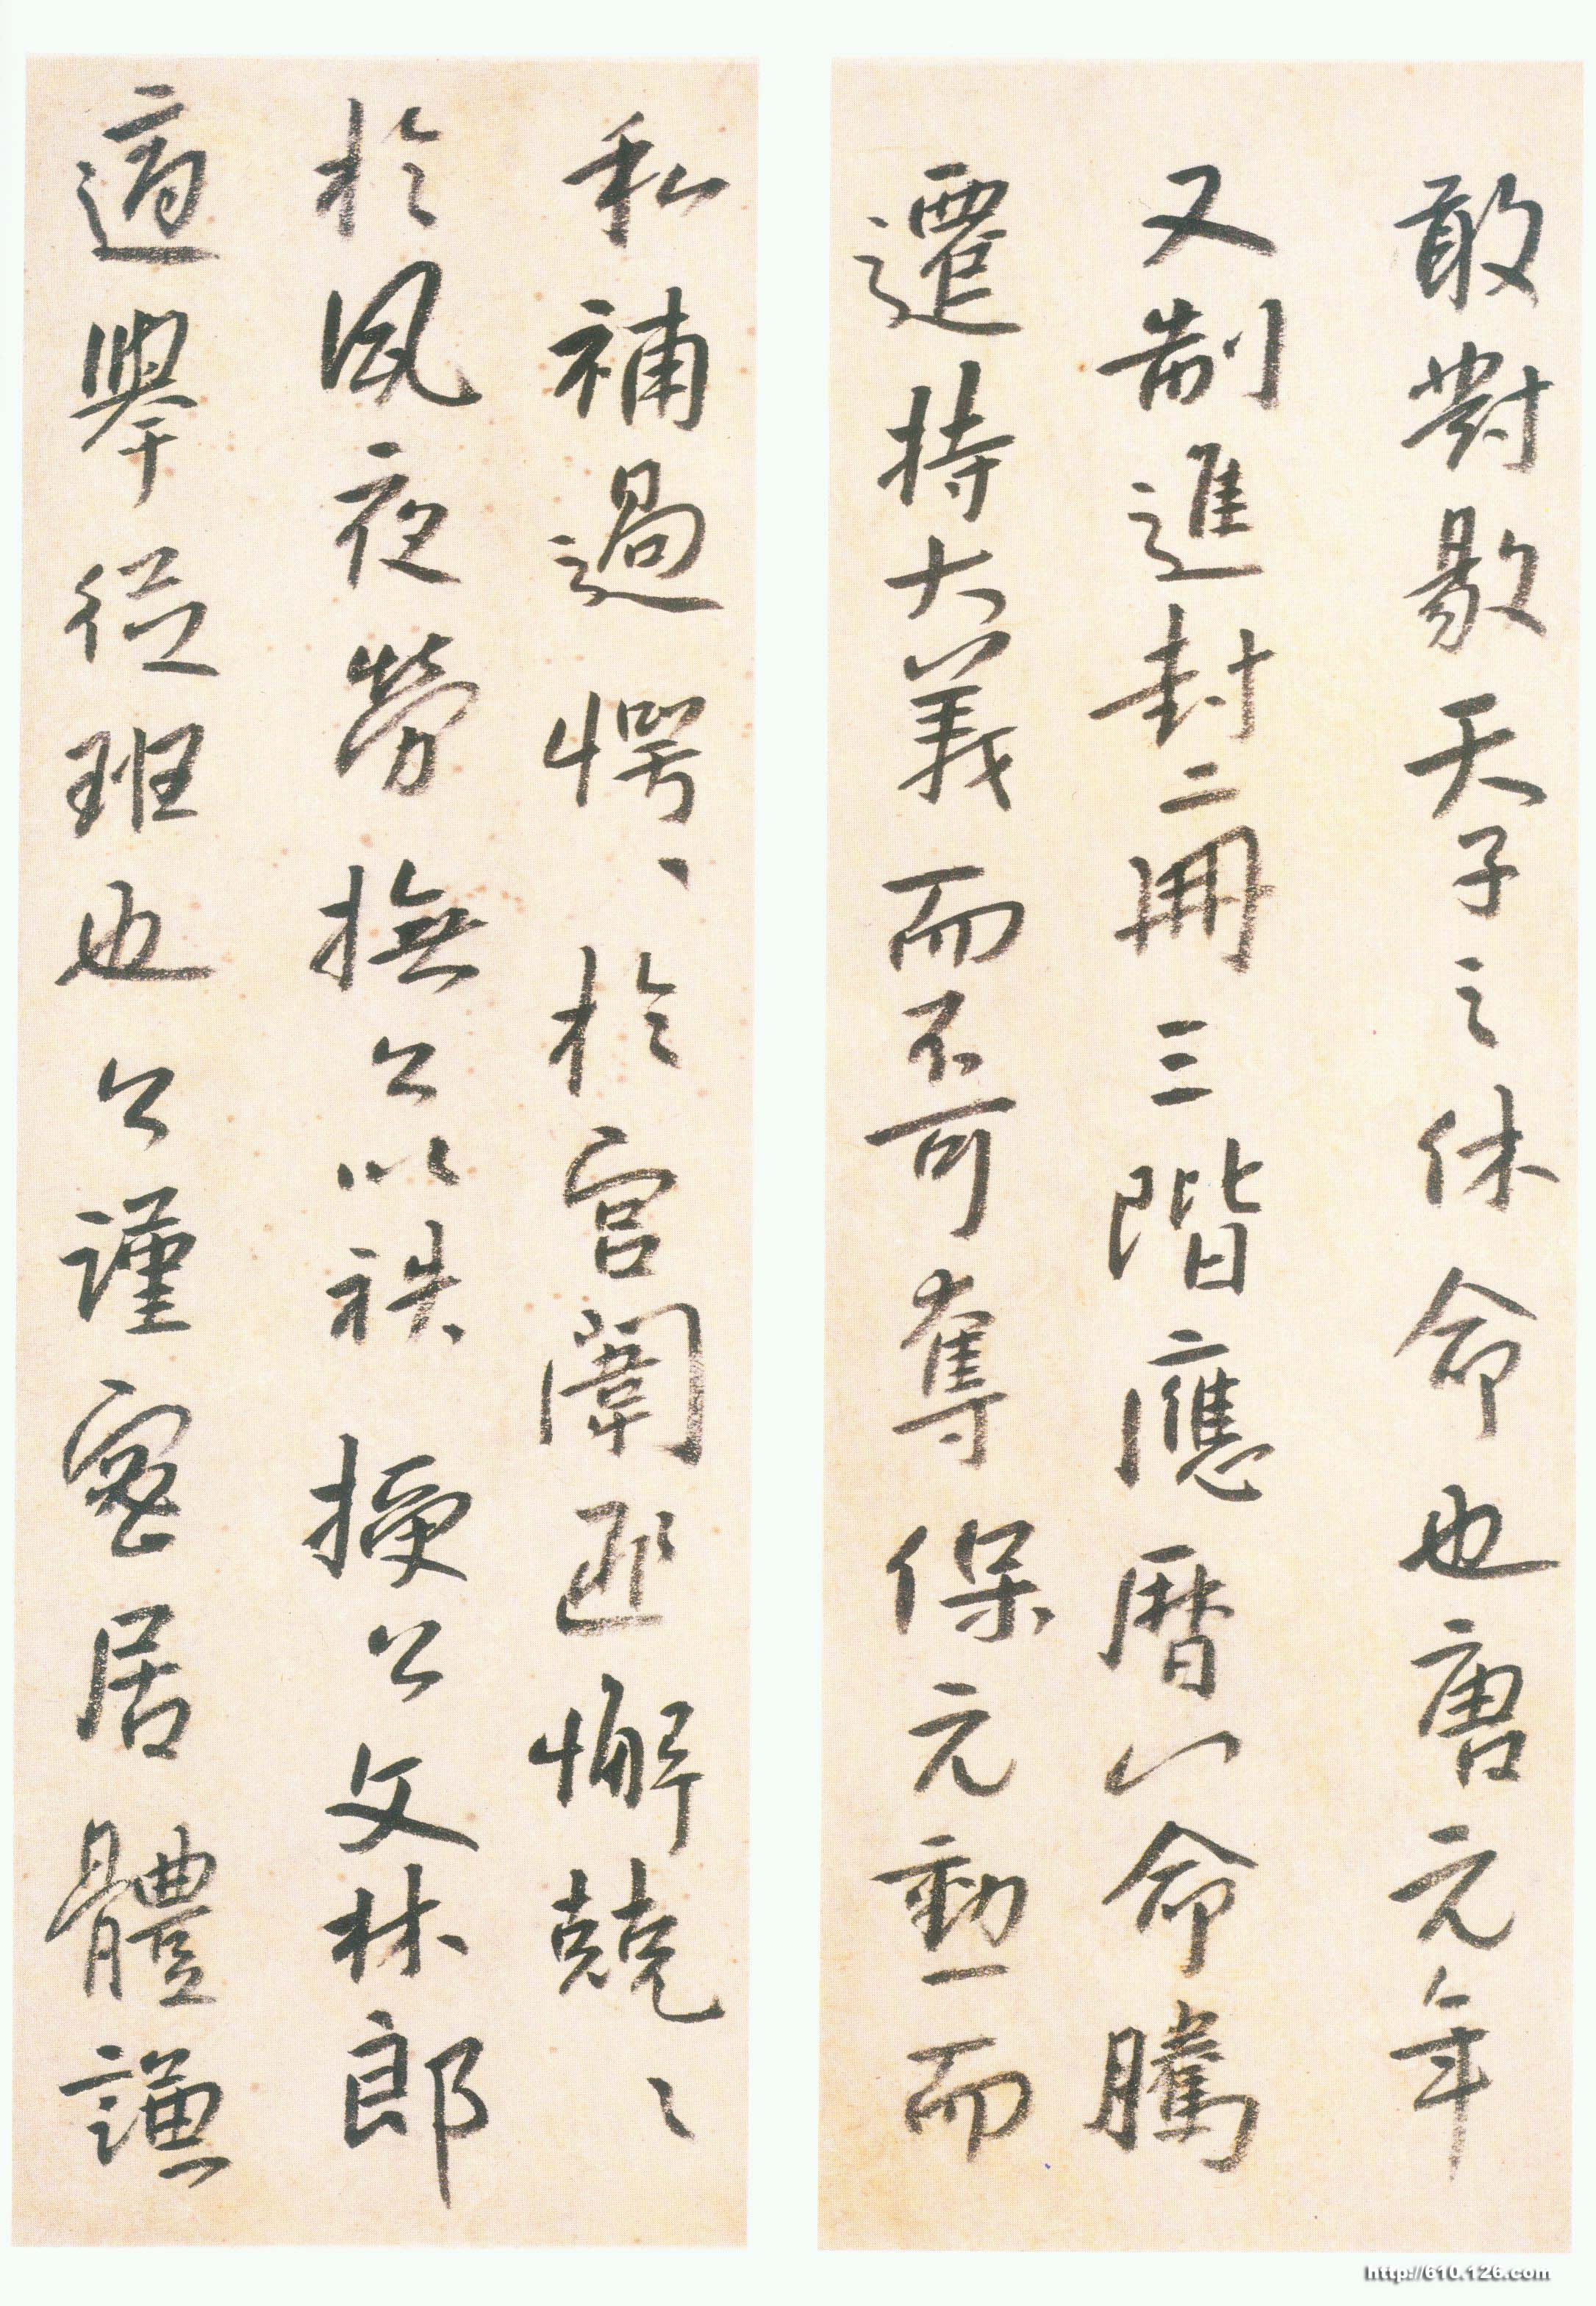 敢對敭天子之休命也唐元年
又制進封二冊三階應曆以命騰
遷持大義而不可奪保元勳而
私補過愕〻於宮闈匪懈兢〻
於夙夜勞撫公以袟授公文林郎
適舉從班也公謹密居體謙
http://610.126.com